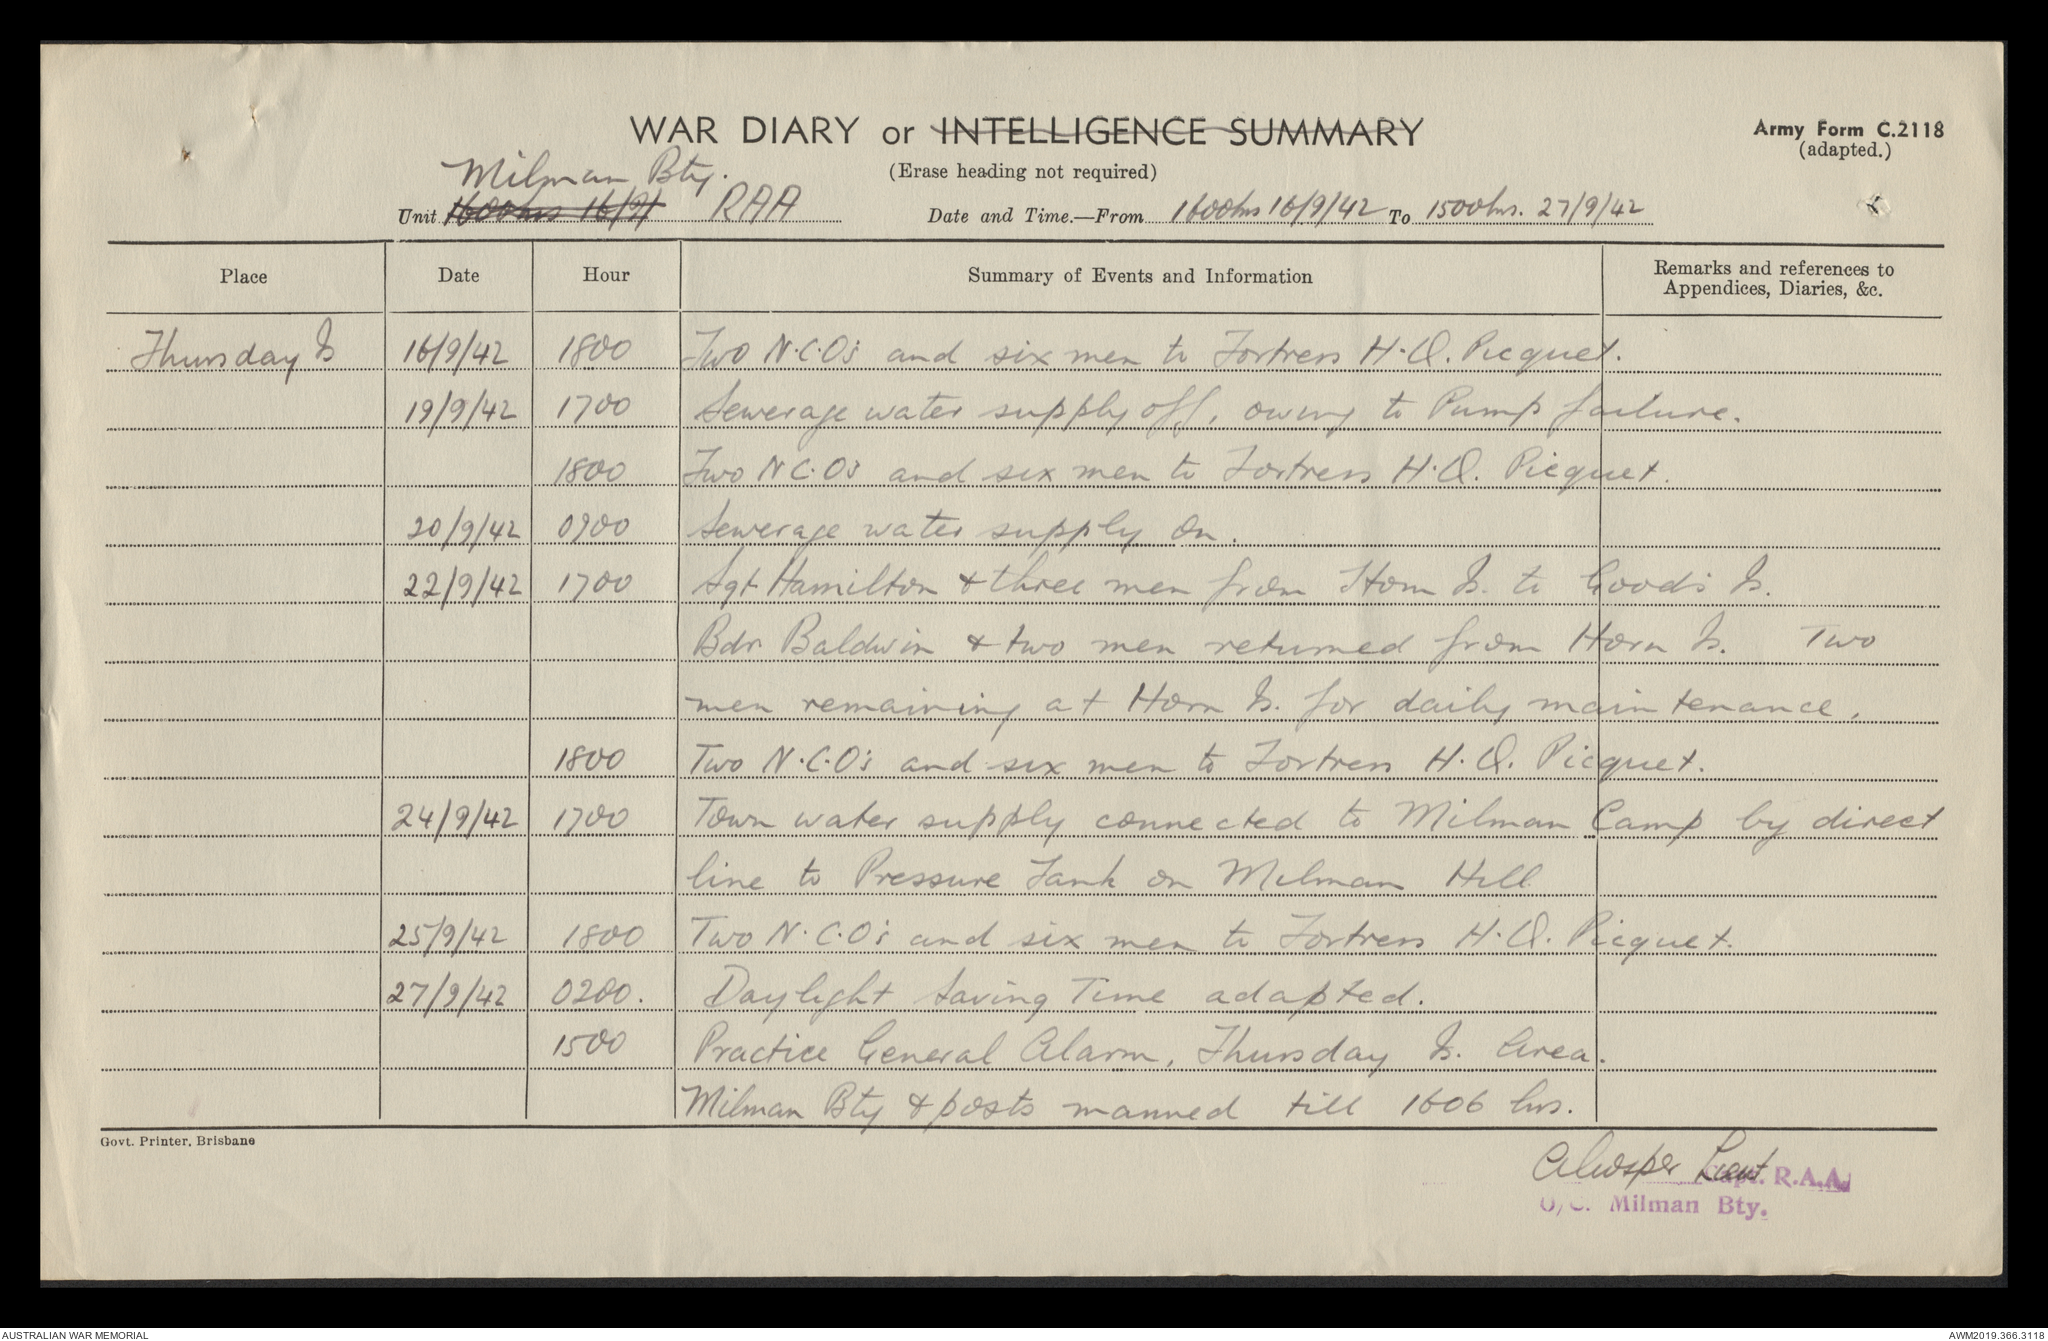 WAR DIARY or INTELLIGENCE SUMMARY
Army Form C.2118
(adapted.)
(Erase heading not required)
Milman Bty.
Unit 1600hrs 16/9/ RAA Date and Time.—From 1600hrs 16/9/42 To 1500hrs. 27/9/42
Place Date Hour Summary of Events and Information Remarks and references to
Appendices, Diaries, &c.
Thursday Is 16/9/42 1800 Two N.C.O's and six men to Fortress H.Q. Picquet.
19/9/42 1700 Sewerage water supply off, owing to Pump failure.
1800 Two N.C.O's and six men to Fortress H.Q. Picquet.
20/9/42 0900 Sewerage water supply on.
22/9/42 1700 Sgt Hamilton & three men from Horn Is. to Goods Is.
Bdr Baldwin & two men returned from Horn Is. Two
men remaining at Horn Is. for daily maintenance.
1800 Two N.C.O's and six men to Fortress H.Q. Picquet.
24/9/42 1700 Town water supply connected to Milman Camp by direct
line to Pressure Tank on Milman Hill
25/9/42 1800 Two N.C.O's and six men to Fortress H.Q. Picquet.
27/9/42 0200. Daylight Saving Time adapted.
1500 Practice General Alarm, Thursday Is. Area.
Milman Bty & posts manned till 1606 hrs.
Govt. Printer, Brisbane
Lieut
Capt. R.A.A.
O/C. Milman Bty.
AUSTRALIAN WAR MEMORIAL
AWM2019.366.3118